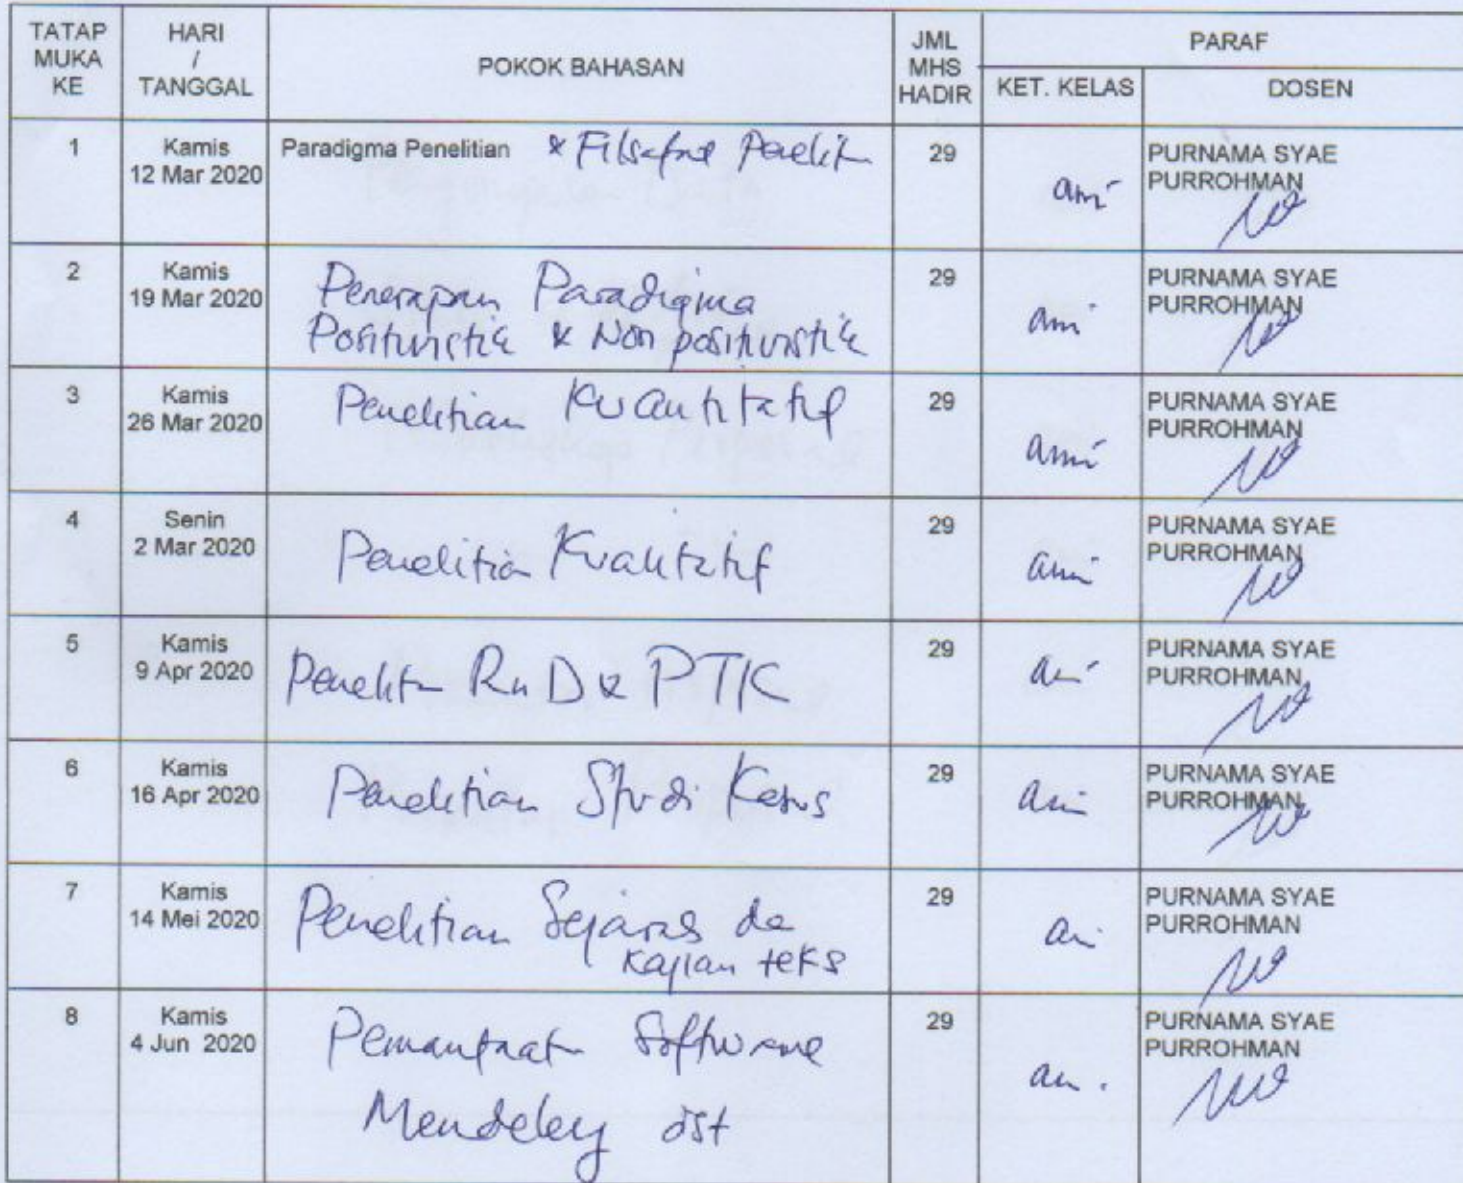 TATAP MUKA KE
HARI / TANGGAL
POKOK BAHASAN
JML MHS HADIR
PARAF
KET. KELAS
DOSEN
1
Kamis
12 Mar 2020
Paradigma Penelitian & Filsafat Penelit
29
ami
PURNAMA SYAE
PURROHMAN
2
Kamis
19 Mar 2020
Penerapan Paradigma
Positivistik & Non positivistik
29
ami
PURNAMA SYAE
PURROHMAN
3
Kamis
26 Mar 2020
Penelitian Kuantitatif
29
ami
PURNAMA SYAE
PURROHMAN
4
Senin
2 Mar 2020
Penelitian Kualitatif
29
ami
PURNAMA SYAE
PURROHMAN
5
Kamis
9 Apr 2020
Penelitn RnD & PTK
29
PURNAMA SYAE
PURROHMAN
6
Kamis
16 Apr 2020
Penelitian Studi Kasus
29
ami
PURNAMA SYAE
PURROHMAN
7
Kamis
14 Mei 2020
Penelitian Sejarah da
kajian teks
29
PURNAMA SYAE
PURROHMAN
8
Kamis
4 Jun 2020
Pemanfaat Software
Mendeley dst
29
PURNAMA SYAE
PURROHMAN